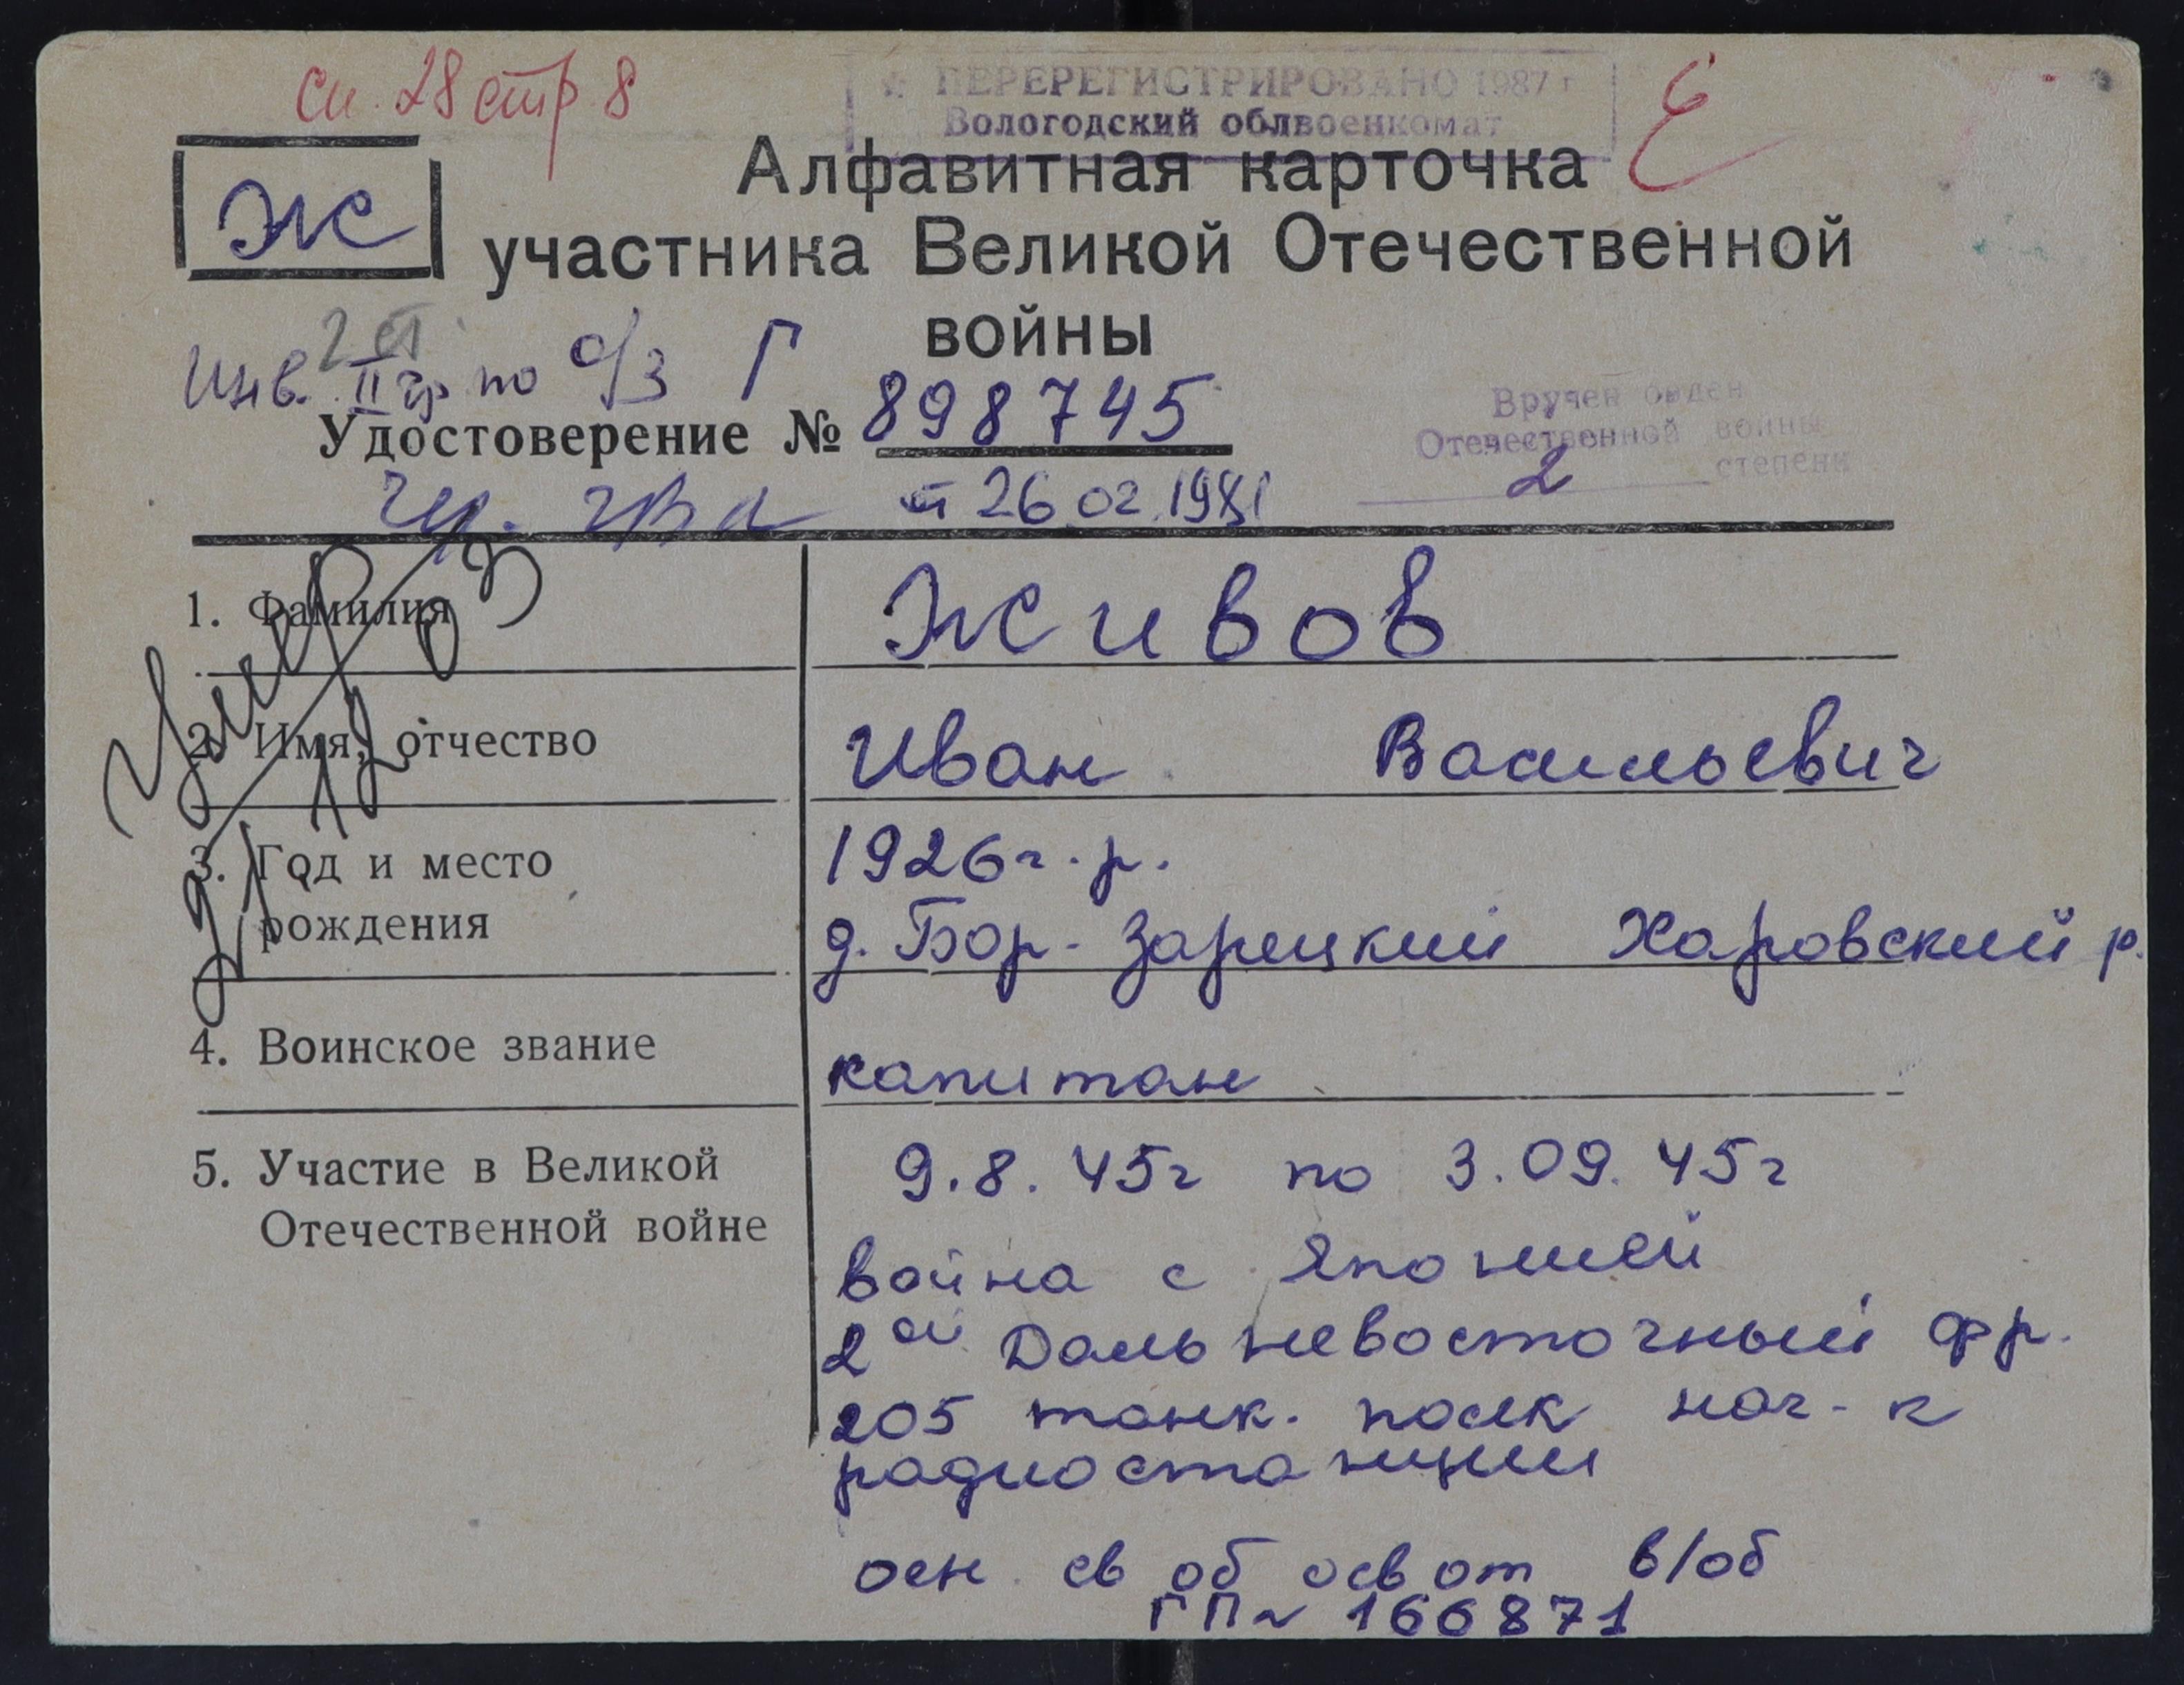 сп. 28 стр. 8
ПЕРЕРЕГИСТРИРОВАНО 1987 г
Вологодский облвоенкомат
Ж
Алфавитная карточка
участника Великой Отечественной
войны
2 ст
Инв. II гр по о/з Г
Удостоверение № 898745
Вручен орден
Отечественной войны
2 степени
от 26.02.1981
1. Фамилия
Живов
2. Имя, отчество
Иван Васильевич
3. Год и место
рождения
1926 г.р.
д. Бор-Зарецкий Харовский р.
Умер
21 12 03
4. Воинское звание
капитан
5. Участие в Великой
Отечественной войне
9.8.45г по 3.09.45г
война с Японией
2ой Дальневосточный фр.
205 танк. полк нач-к
радиостанции
осн. св об осв от в/об
ГП№ 166871